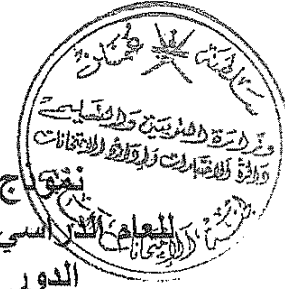 سلطنة عمان
وزارة التربية والتعليم
دائرة الامتحانات وإدارة الامتحانات
نموذج
للعام الدراسي
الدور